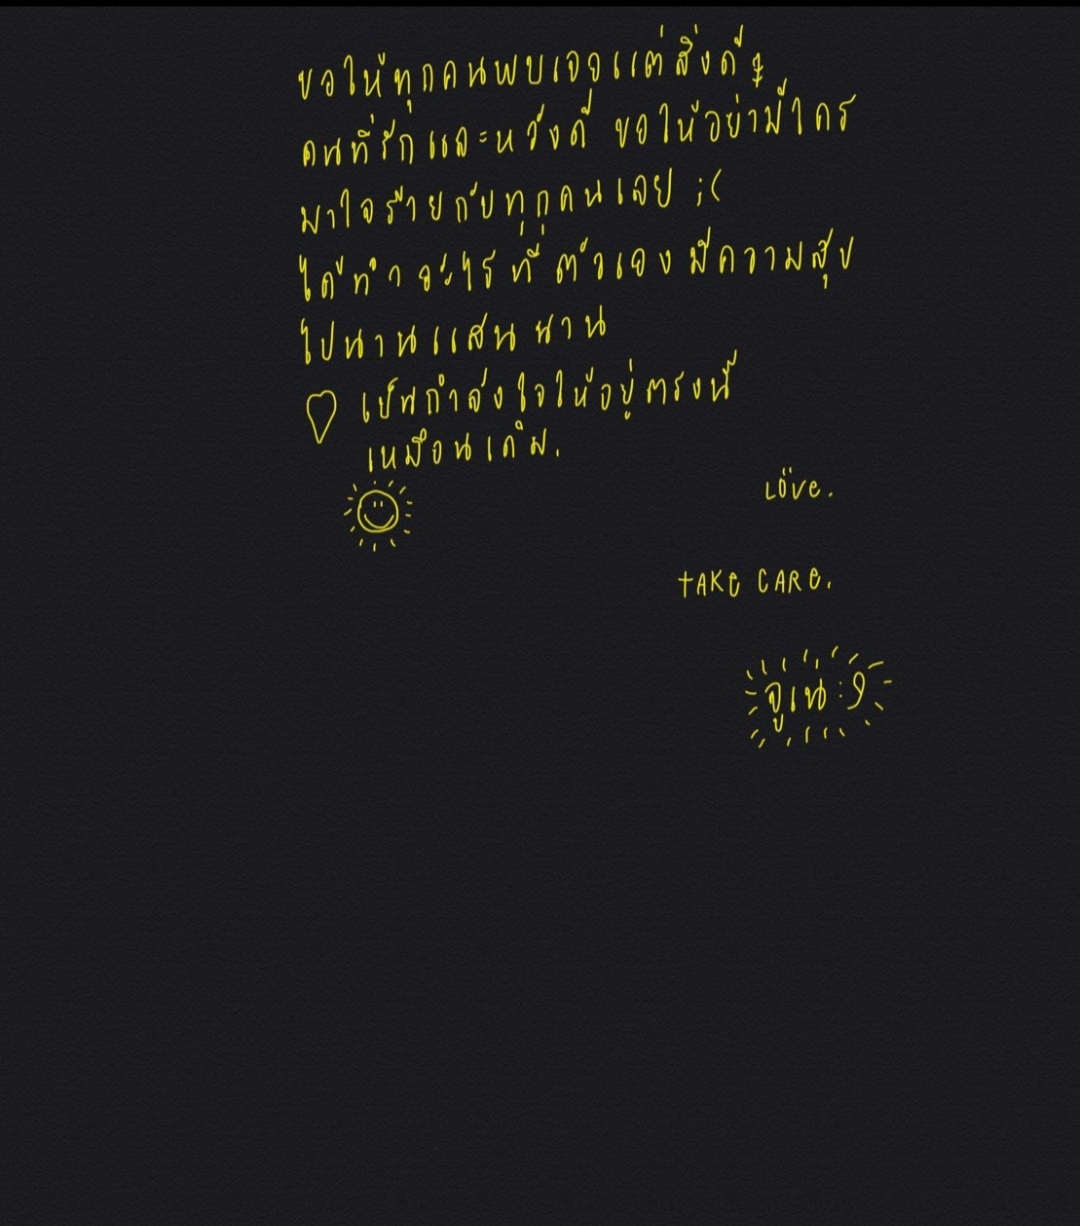 ขอให้ทุกคนพบเจอแต่สิ่งดีๆ
คนที่รักและหวังดี ขอให้อย่ามีใคร
มาใจร้ายกับทุกคนเลย ;(
ได้ทำอะไรที่ตัวเองมีความสุข
ไปนานแสนนาน
เป็นกำลังใจให้อยู่ตรงนี้
เหมือนเดิม.
Löve.
TAKE CARE.
จูเน่ :)